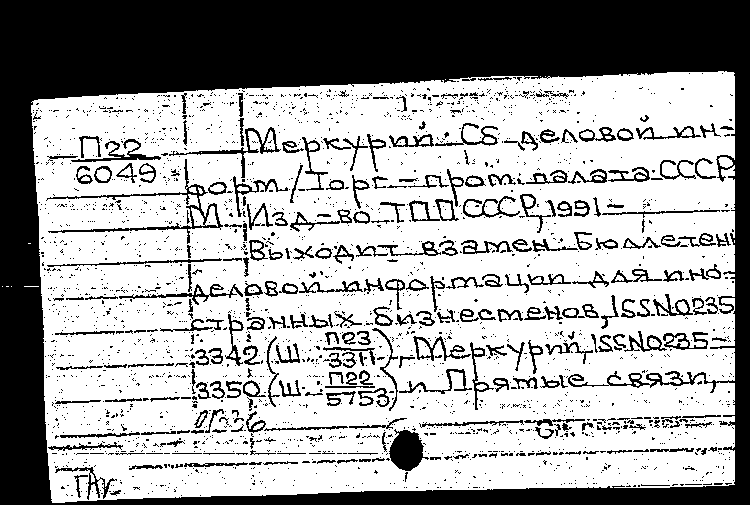 1
П22
6049
Меркурий: Сб деловой ин-
форм./Торг.-пром. палата СССР
М.: Изд-во ТПП СССР, 1991-
Выходит взамен: Бюллетень
деловой информации для ино-
странных бизнесменов, ISSN0235
3342 (Ш. П23/3311), Меркурий, ISSN0235-
3350 (Ш. П22/5753) и Прямые связи,
01336
См.
ГАК